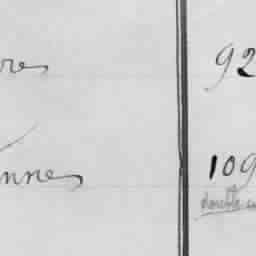 res 92
nnes 109
double